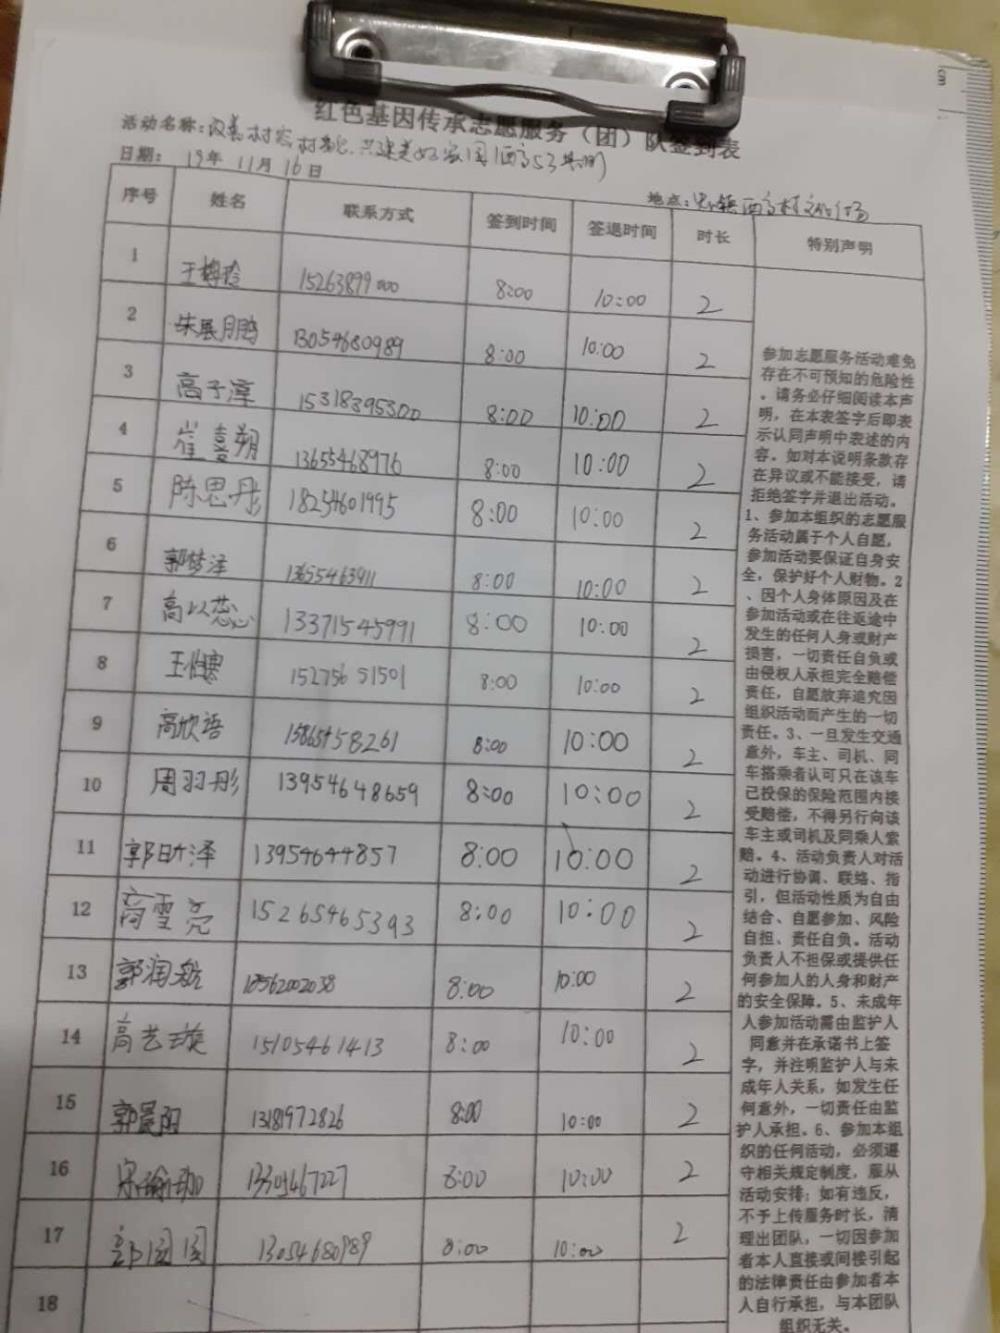 红色基因传承志愿服务(团)队签到表
活动名称:改善村容村貌、共建美好家园
日期: 19年 11月 16日
地点:
序号 姓名 联系方式 签到时间 签退时间 时长 特别声明
1 15263899000 8:00 10:00 2
2 朱展鹏 13054680989 8:00 10:00 2
3 高子淳 15318395300 8:00 10:00 2
4 崔喜朔 13655468976 8:00 10:00 2
5 陈思彤 18254601995 8:00 10:00 2
6 郭梦泽 13655463911 8:00 10:00 2
7 高以蕊 13371545991 8:00 10:00 2
8 15275651501 8:00 10:00 2
9 高欣语 15865458261 8:00 10:00 2
10 周羽彤 13954648659 8:00 10:00 2
11 13954644857 8:00 10:00 2
12 高雪亮 15265465393 8:00 10:00 2
13 郭润航 18562002038 8:00 10:00 2
14 高艺璇 15105461413 8:00 10:00 2
15 郭晨阳 13181972826 8:00 10:00 2
16 8:00 10:00 2
17 郭园园 13054680989 8:00 10:00 2
18
参加志愿服务活动难免
存在不可预知的危险性
。请务必仔细阅读本声
明,在本表签字后即表
示认同声明中表述的内
容。如对本说明条款存
在异议或不能接受,请
拒绝签字并退出活动。
1、参加本组织的志愿服
务活动属于个人自愿,
参加活动要保证自身安
全,保护好个人财物。2
、因个人身体原因及在
参加活动或在往返途中
发生的任何人身或财产
损害,一切责任自负或
由侵权人承担完全赔偿
责任,自愿放弃追究因
组织活动而产生的一切
责任。3、一旦发生交通
意外,车主、司机、同
车搭乘者认可只在该车
已投保的保险范围内接
受赔偿,不得另行向该
车主或司机及同乘人索
赔。4、活动负责人对活
动进行协调、联络、指
引,但活动性质为自由
结合、自愿参加、风险
自担、责任自负。活动
负责人不担保或提供任
何参加人的人身和财产
的安全保障。5、未成年
人参加活动需由监护人
同意并在承诺书上签
字,并注明监护人与未
成年人关系,如发生任
何意外,一切责任由监
护人承担。6、参加本组
织的任何活动,必须遵
守相关规定制度,服从
活动安排;如有违反,
不予上传服务时长,清
理出团队,一切因参加
者本人直接或间接引起
的法律责任由参加者本
人自行承担,与本团队
组织无关。